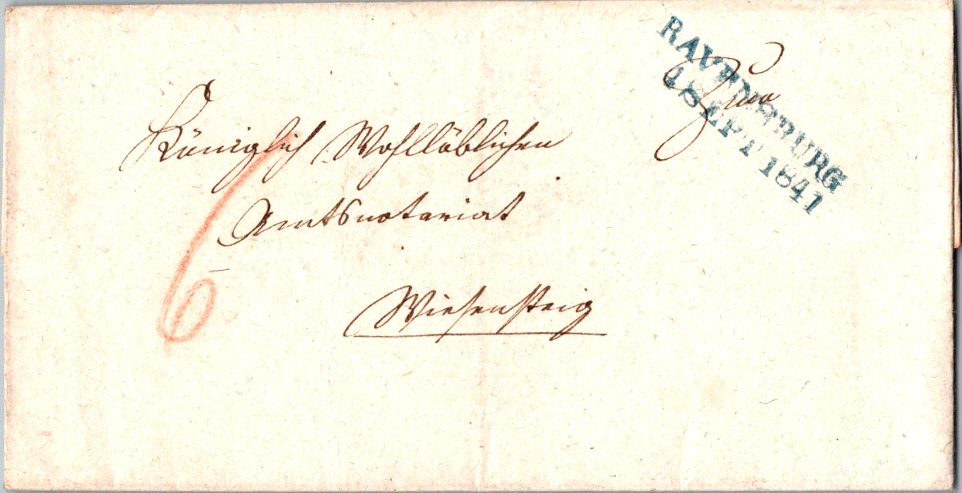 RAVENSBURG
18 SEPT 1841
Königlich Wohllöblichen
Amtsnotariat
Wiesensteig
6